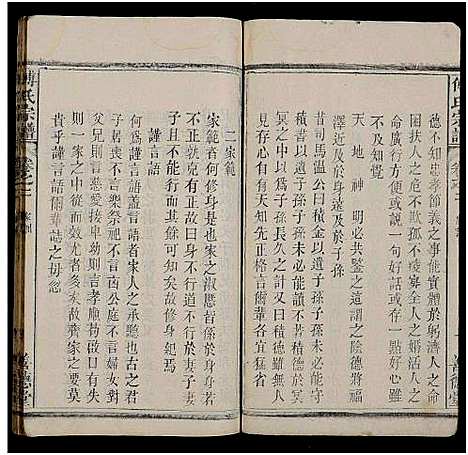 傅氏宗譜
德不知忠孝節義之事能實體於躬濟人之
困扶人之危不欺孤不虐寡全人之婚活人之
命廣行方便說一句好話或存一點好心鬼不
可見
天地神明必共鑒之這謂之陰德將
澤近及於身遠及於子孫
昔司馬溫公曰積金以遺子孫子孫未必能守
積書以遺子孫子孫未必能讀不若積德於冥
冥之中以為子孫長久之計又曰積德雖無人
見行善自有天知先正格言爾輩各宜猛省
善德堂
二家範
家範者何修身是也家之淑慝皆係於身身所
不正就先有家不行道不行於妻子妻子
子且不能行焉家可知矣故修身範焉
謹言語
何為謹言語蓋言語者家人之承聽也古之君
子居喪不言樂祭祀不言凶公庭不言婦女對
父兄則言慈愛接卑幼則言孝庸敬日有失言
則一家之中從而效尤者多矣故齊家之要莫
貴乎謹言語爾輩誌之毋忽
傅氏宗譜
卷之二
家訓
善德堂